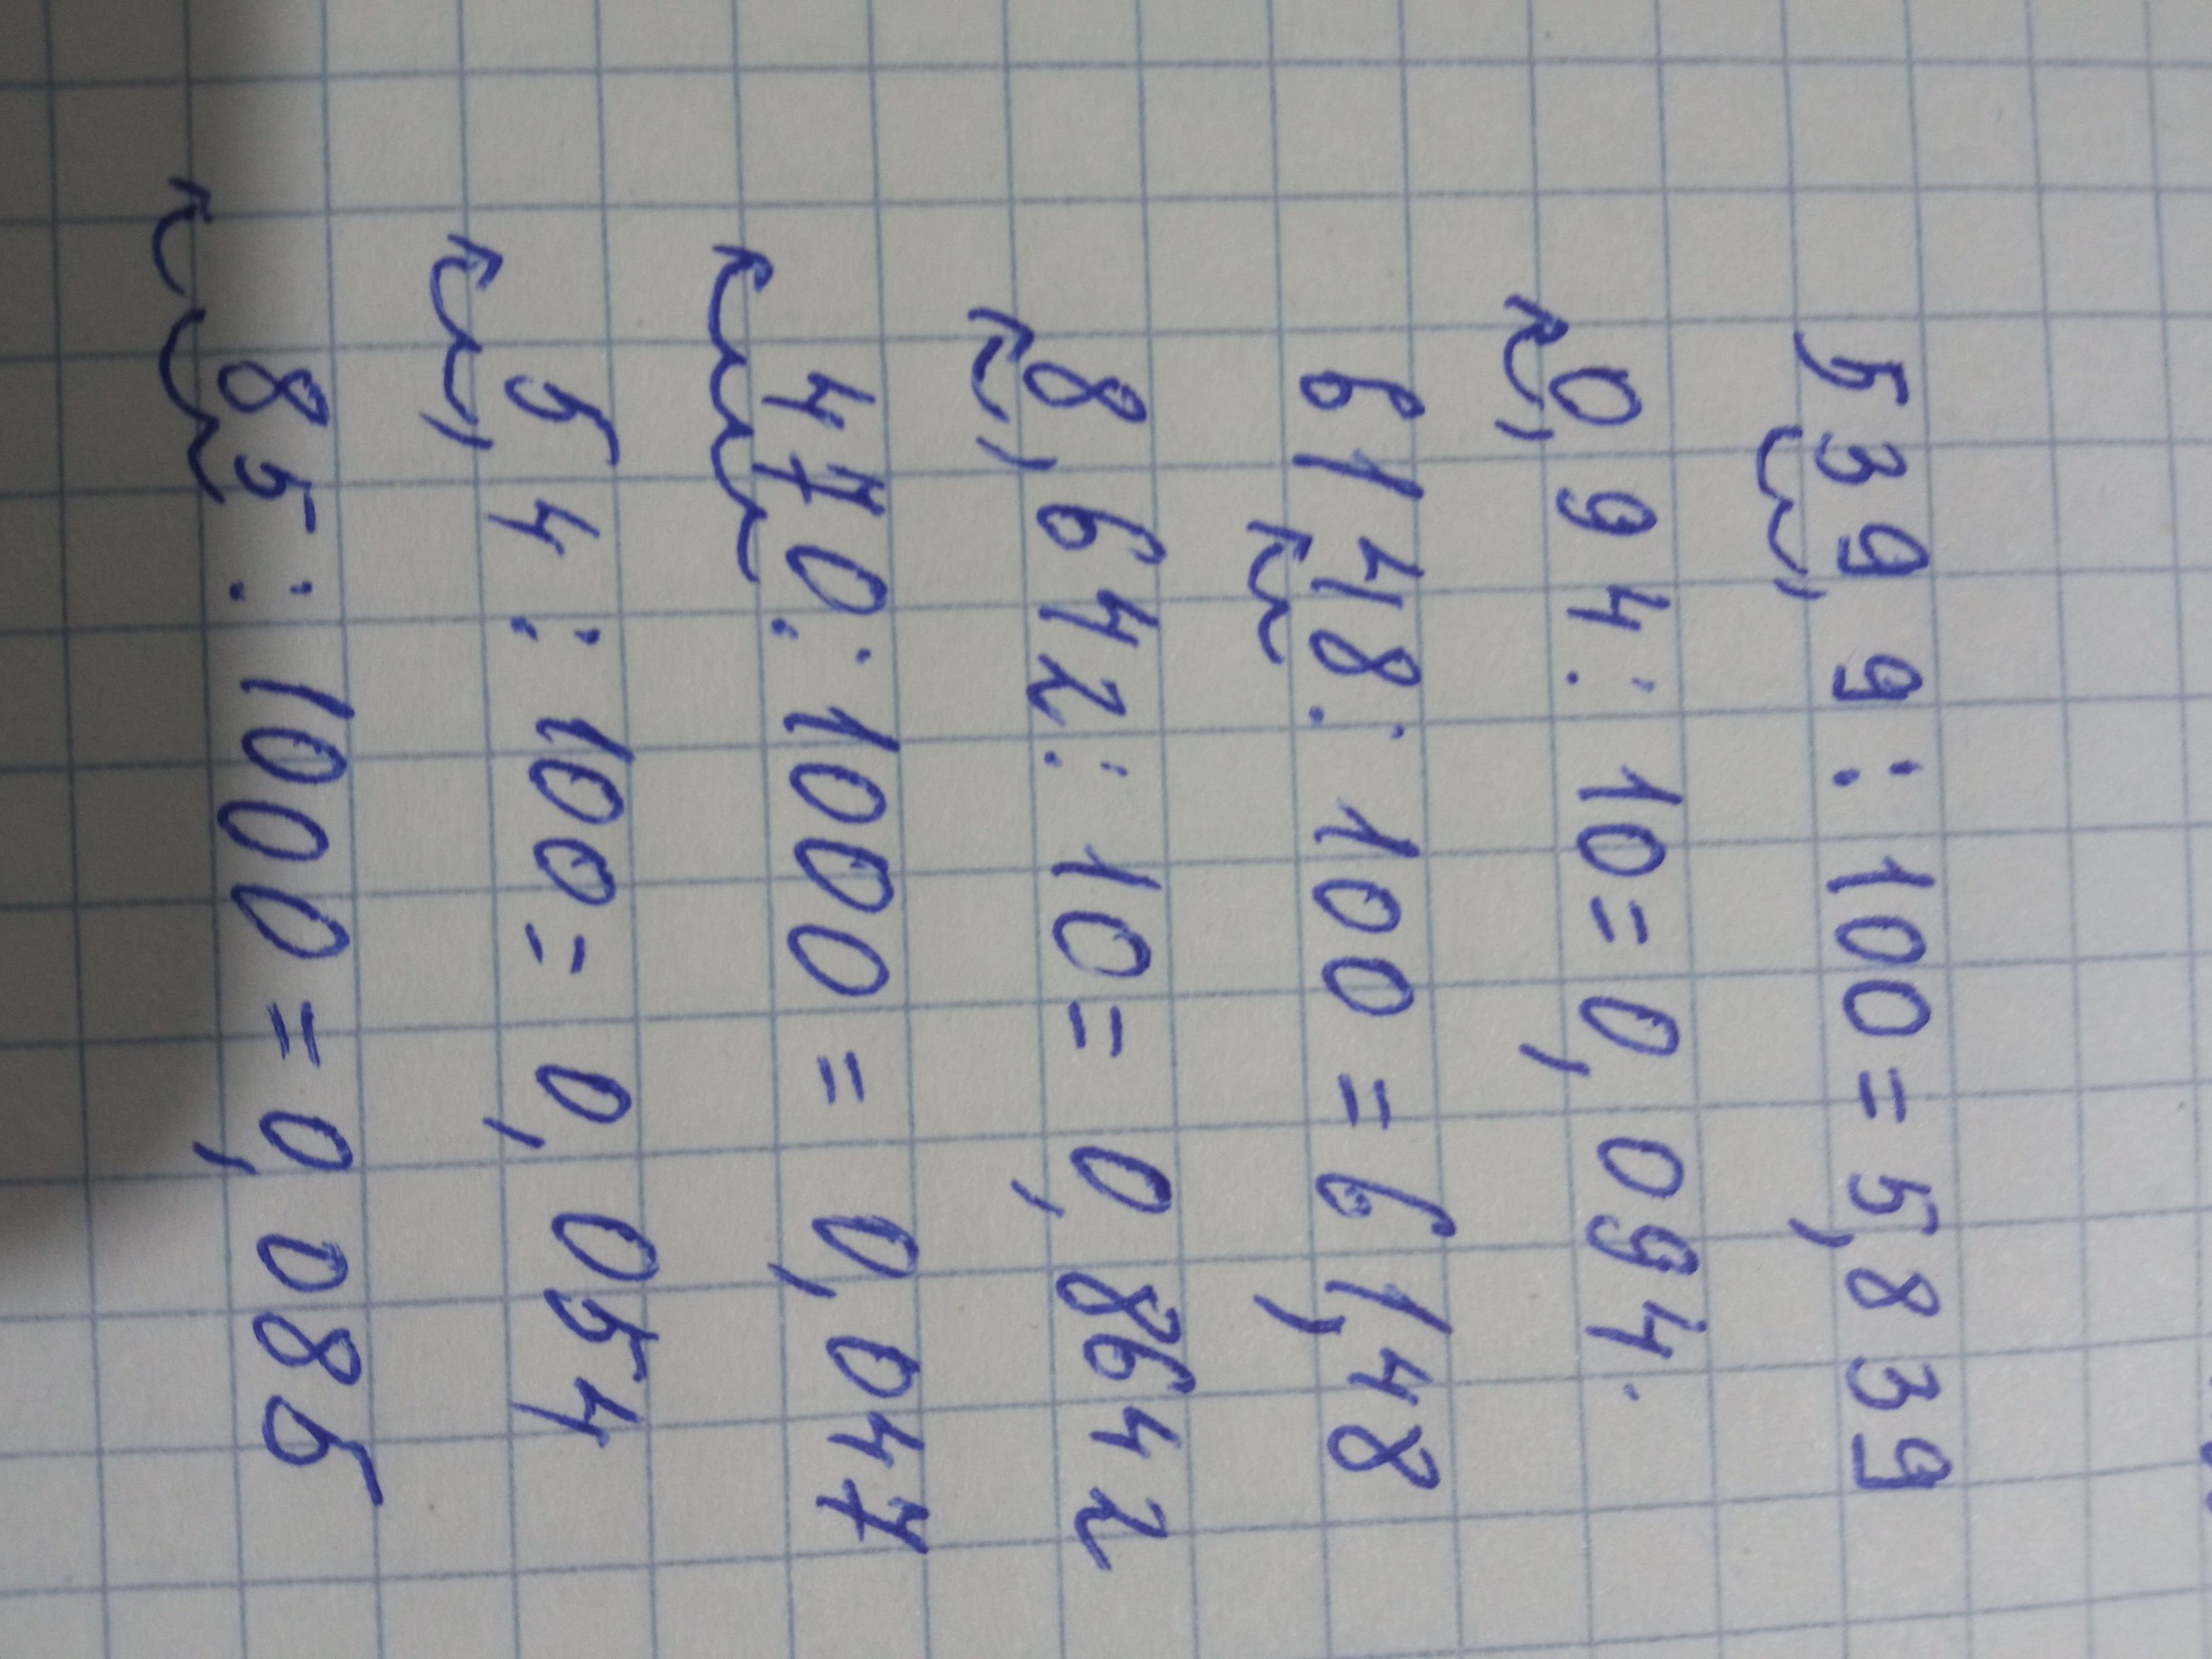 539,9 : 100 = 5,839
0,94 : 10 = 0,094.
6148 : 100 = 61,48
8,642 : 10 = 0,8642
470 : 1000 = 0,047
5,4 : 100 = 0,054
85 : 1000 = 0,085